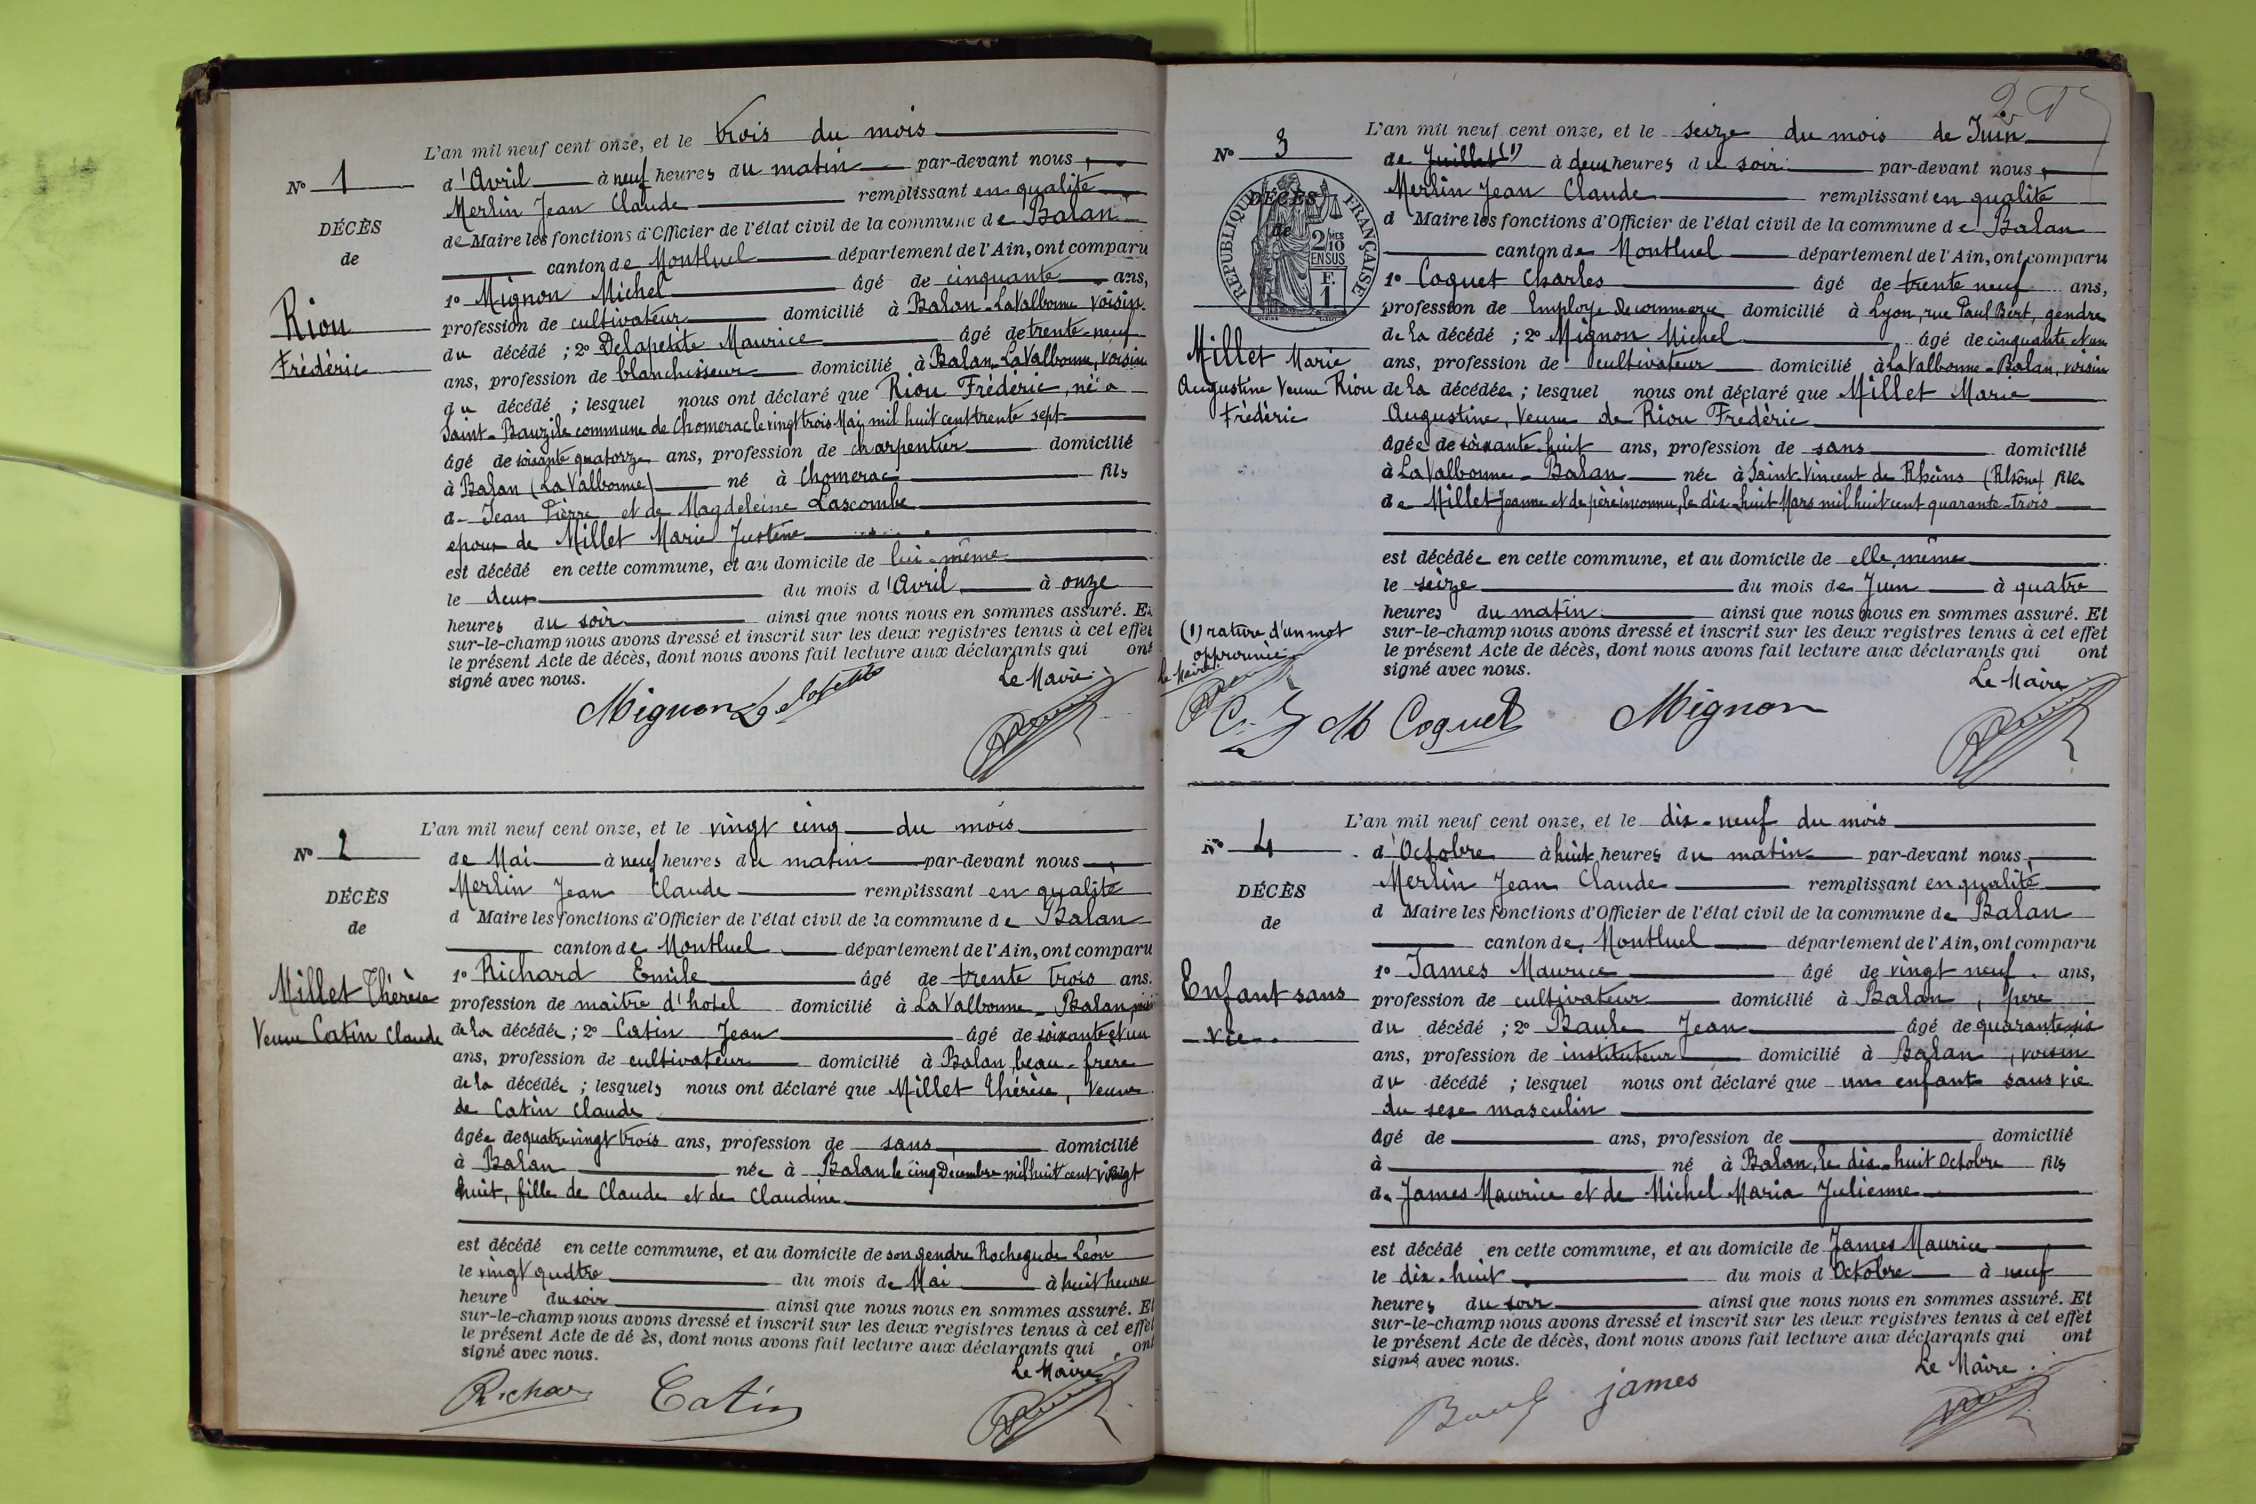 L'an mil neuf cent onze, et le trois du mois
N° 1
d'Avril à neuf heures du matin par-devant nous,
Merlin Jean Claude remplissant en qualité
DÉCÈS
de Maire les fonctions d'Officier de l'état civil de la commune de Balan
de
canton de Montluel département de l'Ain, ont comparu
1° Mignon Michel âgé de cinquante ans,
Riou
profession de cultivateur domicilié à Balan-LaValbonne voisin
du décédé ; 2° Delapetite Maurice âgé de trente-neuf
Frédéric
ans, profession de blanchisseur domicilié à Balan-LaValbonne, voisin
du décédé ; lesquel nous ont déclaré que Riou Fréderic, né à
Saint-Bauzile commune de Chomerac le vingt trois Mai mil huit cent trente sept
âgé de soixante quatorze ans, profession de charpentier domicilié
à Balan (LaValbonne) né à Chomerac fils
de Jean Pierre et de Magdeleine Lascombe
epoux de Millet Marie Justine
est décédé en cette commune, et au domicile de lui-même
le deux du mois d'Avril à onze
heures du soir ainsi que nous nous en sommes assuré. Et
sur-le-champ nous avons dressé et inscrit sur les deux registres tenus à cet effet
le présent Acte de décès, dont nous avons fait lecture aux déclarants qui ont
signé avec nous. Le Maire
Mignon Delapetite
L'an mil neuf cent onze, et le vingt cinq du mois
N° 2
de Mai à neuf heures du matin par-devant nous,
Merlin Jean Claude remplissant en qualité
DÉCÈS
d Maire les fonctions d'Officier de l'état civil de la commune de Balan
de
canton de Montluel département de l'Ain, ont comparu
1° Richard Emile âgé de trente trois ans.
Millet Thérèse
profession de maitre d'hotel domicilié à LaValbonne-Balan,
Veuve Catin Claude
de la décédée ; 2° Catin Jean âgé de soixante et un
ans, profession de cultivateur domicilié à Balan, beau-frere
de la décédée ; lesquels nous ont déclaré que Millet Thérèse, Veuve
de Catin Claude
âgée de quatre vingt trois ans, profession de sans domicilié
à Balan née à Balan le cinq Décembre mil huit cent vingt
huit, fille de Claude et de Claudine
est décédé en cette commune, et au domicile de son gendre Rochegude Léon
le vingt quatre du mois de Mai à huit heures
heure du soir ainsi que nous nous en sommes assuré. Et
sur-le-champ nous avons dressé et inscrit sur les deux registres tenus à cet effet
le présent Acte de dé ès, dont nous avons fait lecture aux déclarants qui ont
signé avec nous.
Le Maire
Richard Catin
2
L'an mil neuf cent onze, et le seize du mois de Juin
N° 3
de Juillet (1) à deux heures du soir par-devant nous,
Merlin Jean Claude remplissant en qualité
DÉCÈS
de
RÉPUBLIQUE FRANÇAISE
2/10 EN SUS
F. 1
d Maire les fonctions d'Officier de l'état civil de la commune de Balan
canton de Montluel département de l'Ain, ont comparu
1° Coquet Charles âgé de trente neuf ans,
profession de Employé de commerce domicilié à Lyon, rue Paul Bert, gendre
de la décédé ; 2° Mignon Michel âgé de cinquante et un
Millet Marie
ans, profession de cultivateur domicilié à LaValbonne-Balan, voisin
Augustine Veuve Riou
de la décédée ; lesquel nous ont déclaré que Millet Marie
Frédéric
Augustine, Veuve de Riou Frédéric
âgée de soixante-huit ans, profession de sans domicilié
à LaValbonne-Balan née à Saint-Vincent de Rheins (Rhône) fille
de Millet Jeanne et de père inconnu, le dix-huit Mars mil huit cent quarante-trois
est décédée en cette commune, et au domicile de elle même
le seize du mois de Juin à quatre
heures du matin ainsi que nous nous en sommes assuré. Et
(1) rature d'un mot
sur-le-champ nous avons dressé et inscrit sur les deux registres tenus à cet effet
approuvée
le présent Acte de décès, dont nous avons fait lecture aux déclarants qui ont
Le Maire
signé avec nous. Le Maire
M Coquet Mignon
L'an mil neuf cent onze, et le dix-neuf du mois
N° 4
d'Octobre à huit heures du matin par-devant nous,
Merlin Jean Claude remplissant en qualité
DÉCÈS
d Maire les fonctions d'Officier de l'état civil de la commune de Balan
de
canton de Montluel département de l'Ain, ont comparu
1° James Maurice âgé de vingt neuf ans,
Enfant sans
profession de cultivateur domicilié à Balan, pere
vie
du décédé ; 2° Baule Jean âgé de quarante six
ans, profession de instituteur domicilié à Balan, voisin
du décédé ; lesquel nous ont déclaré que un enfant sans vie
du sexe masculin
âgé de ans, profession de domicilié
à né à Balan, le dix-huit Octobre fils
de James Maurice et de Michel Maria Julienne
est décédé en cette commune, et au domicile de James Maurice
le dix-huit du mois d Octobre à neuf
heures du soir ainsi que nous nous en sommes assuré. Et
sur-le-champ nous avons dressé et inscrit sur les deux registres tenus à cet effet
le présent Acte de décès, dont nous avons fait lecture aux déclarants qui ont
signé avec nous. Le Maire
Baule James